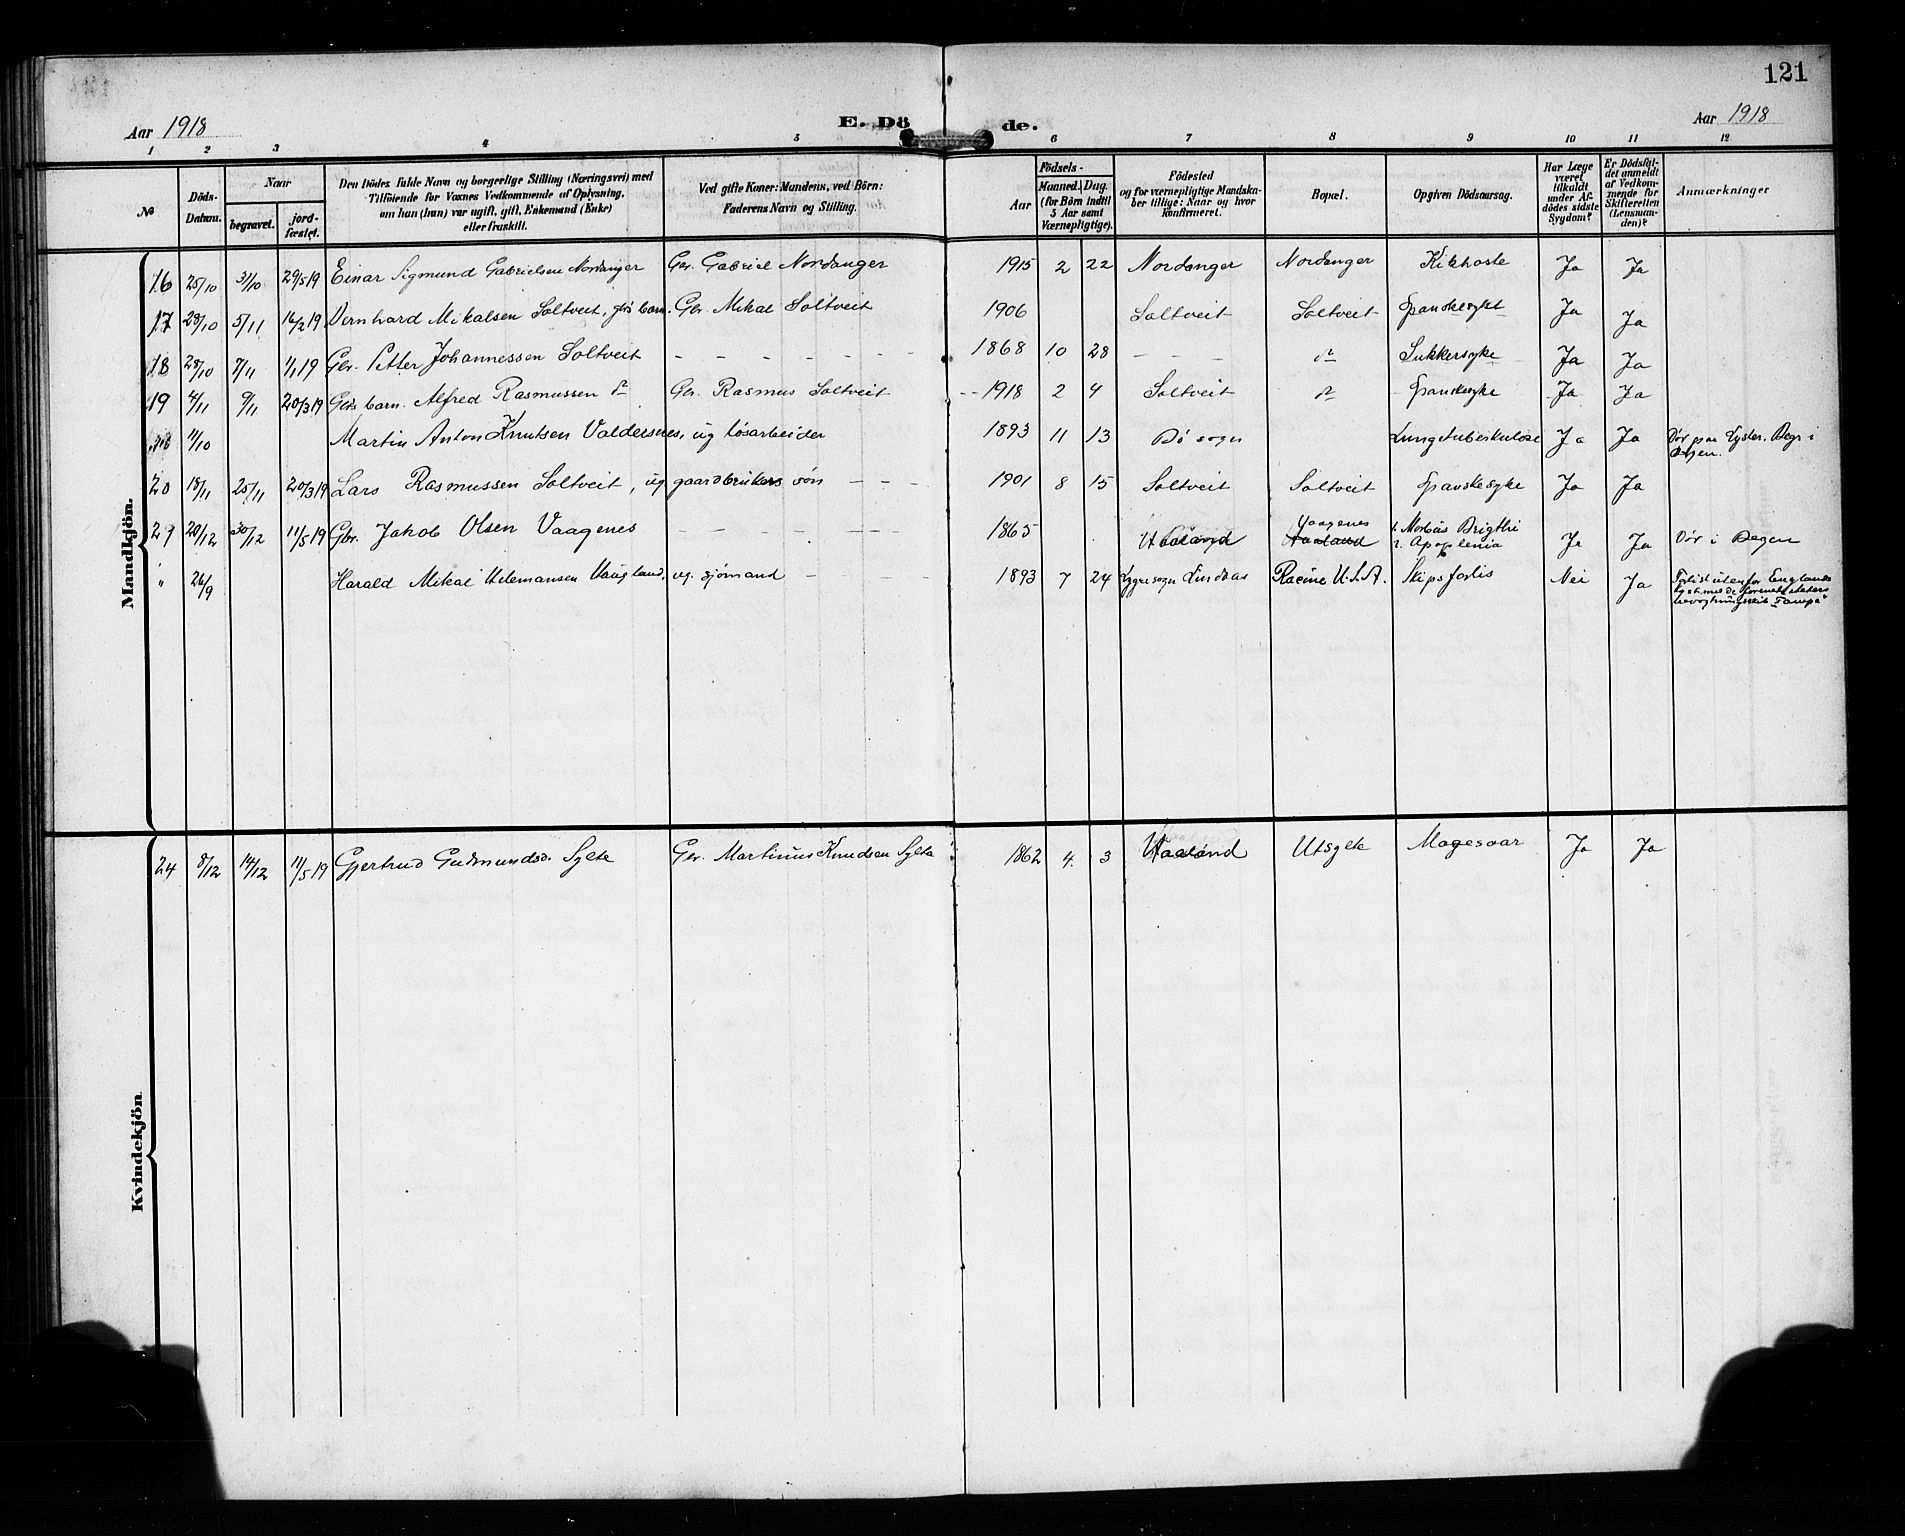 121
Aar 1918 E. Dö de. Aar 1918
1 2 3 4 5 6 7 8 9 10 11 12
No
Döds-Datum.
Naar
begravet.
jord-fæstet.
Den Dödes fulde Navn og borgerlige Stilling (Næringsvei) med
Tilföiende for Voxnes Vedkommende af Oplysning,
om han (hun) var ugift, gift, Enkemand (Enke)
eller fraskilt.
Ved gifte Koner: Mandens, ved Börn:
Faderens Navn og Stilling.
Födsels-
Aar
Maaned. Dag.
(for Börn indtil
5 Aar samt
Værnepligtige).
Födested
og for værnepligtige Mandska-
ber tillige: Naar og hvor
konfirmeret.
Bopæl.
Opgiven Dödsaarsag.
Har Læge
været
tilkaldt
under Af-
dödes sidste
Sygdom?
Er Dödsfal-
det anmeldt
af Vedkom-
mende for
Skifteretten
(Lensman-
den)?
Anmærkninger
Mandkjön.
16 25/10 31/10 29/5 19 Einar Sigmund Gabrielsen Nordanger Gbr. Gabriel Nordanger 1915 2 22 Nordanger Nordanger Kikhoste Ja Ja
17 28/10 5/11 16/2 19 Bernhard Mikalsen Soltveit, gbs barn. Gbr. Mikal Soltveit 1906 Soltveit Soltveit Spanskesyke Ja Ja
18 28/10 7/11 1/1 19 Gbr. Petter Johannessen Soltveit – – – – – – 1868 10 28 – – – Sukkersyke Ja Ja
19 4/11 9/11 20/3 19 Gbs barn. Alfred Rasmussen Gbr. Rasmus Soltveit 1918 2 4 Soltveit Spanskesyke Ja Ja
11/10 Martin Anton Knutsen Valdersnes, ug løsarbeider 1893 11 13 Bø sogn Lungetuberkulose Ja Ja Dør paa Lyster. Begr i
Bergen.
20 18/11 25/11 20/3 19 Lars Rasmussen Soltveit, ug gaardbrukers søn – – – 1901 8 15 Soltveit Soltveit Spanskesyke Ja Ja
21 20/12 30/12 11/5 19 Gbr. Jakob Olsen Vaagenes – – – – – 1865 Vaagenes 1. Morbus Brigthi
2. Apoplexia Ja Ja Dør i Bergen
" 26/9 Harald Mikal Haugland, ug. sjømand – – 1893 7 24 Lygresogn Lindaas Racine U.S.A. Skipsforlis Nei Ja Forlist utenfor Englands
kyst med de forenede staters
bevogtningsskib "Tampa"
Kvindekjön.
24 8/12 14/12 11/5 19 Gjertrud Gudmundsd. Sylte Gbr. Martinus Knudsen Sylta 1862 4. 3 Utsylte Magesaar Ja Ja